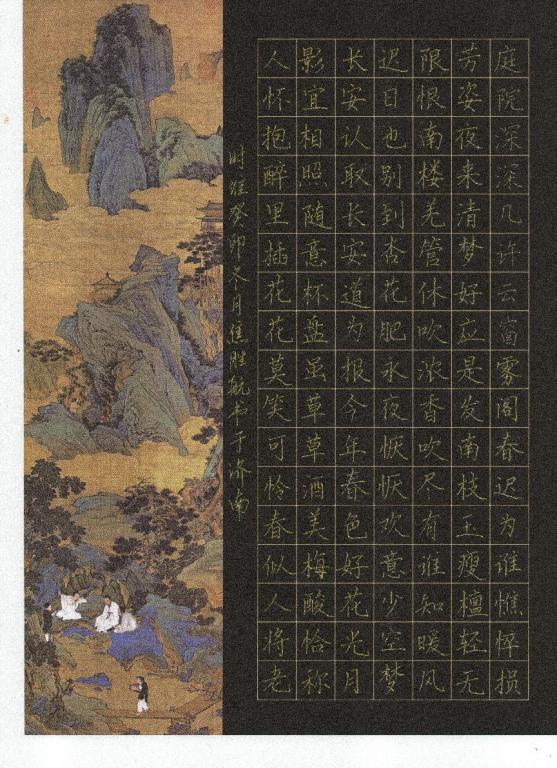 庭院深深几许云窗雾阁春迟为谁憔悴损
芳姿夜来清梦好应是发南枝玉瘦檀轻无
限恨南楼羌管休吹浓香吹尽有谁知暖风
迟日也别到杏花肥永夜恹恹欢意少空梦
长安认取长安道为报今年春色好花光月
影宜相照随意杯盘虽草草酒美梅酸恰称
人怀抱醉里插花花莫笑可怜春似人将老
时维癸卯冬月焦胜航书于济南